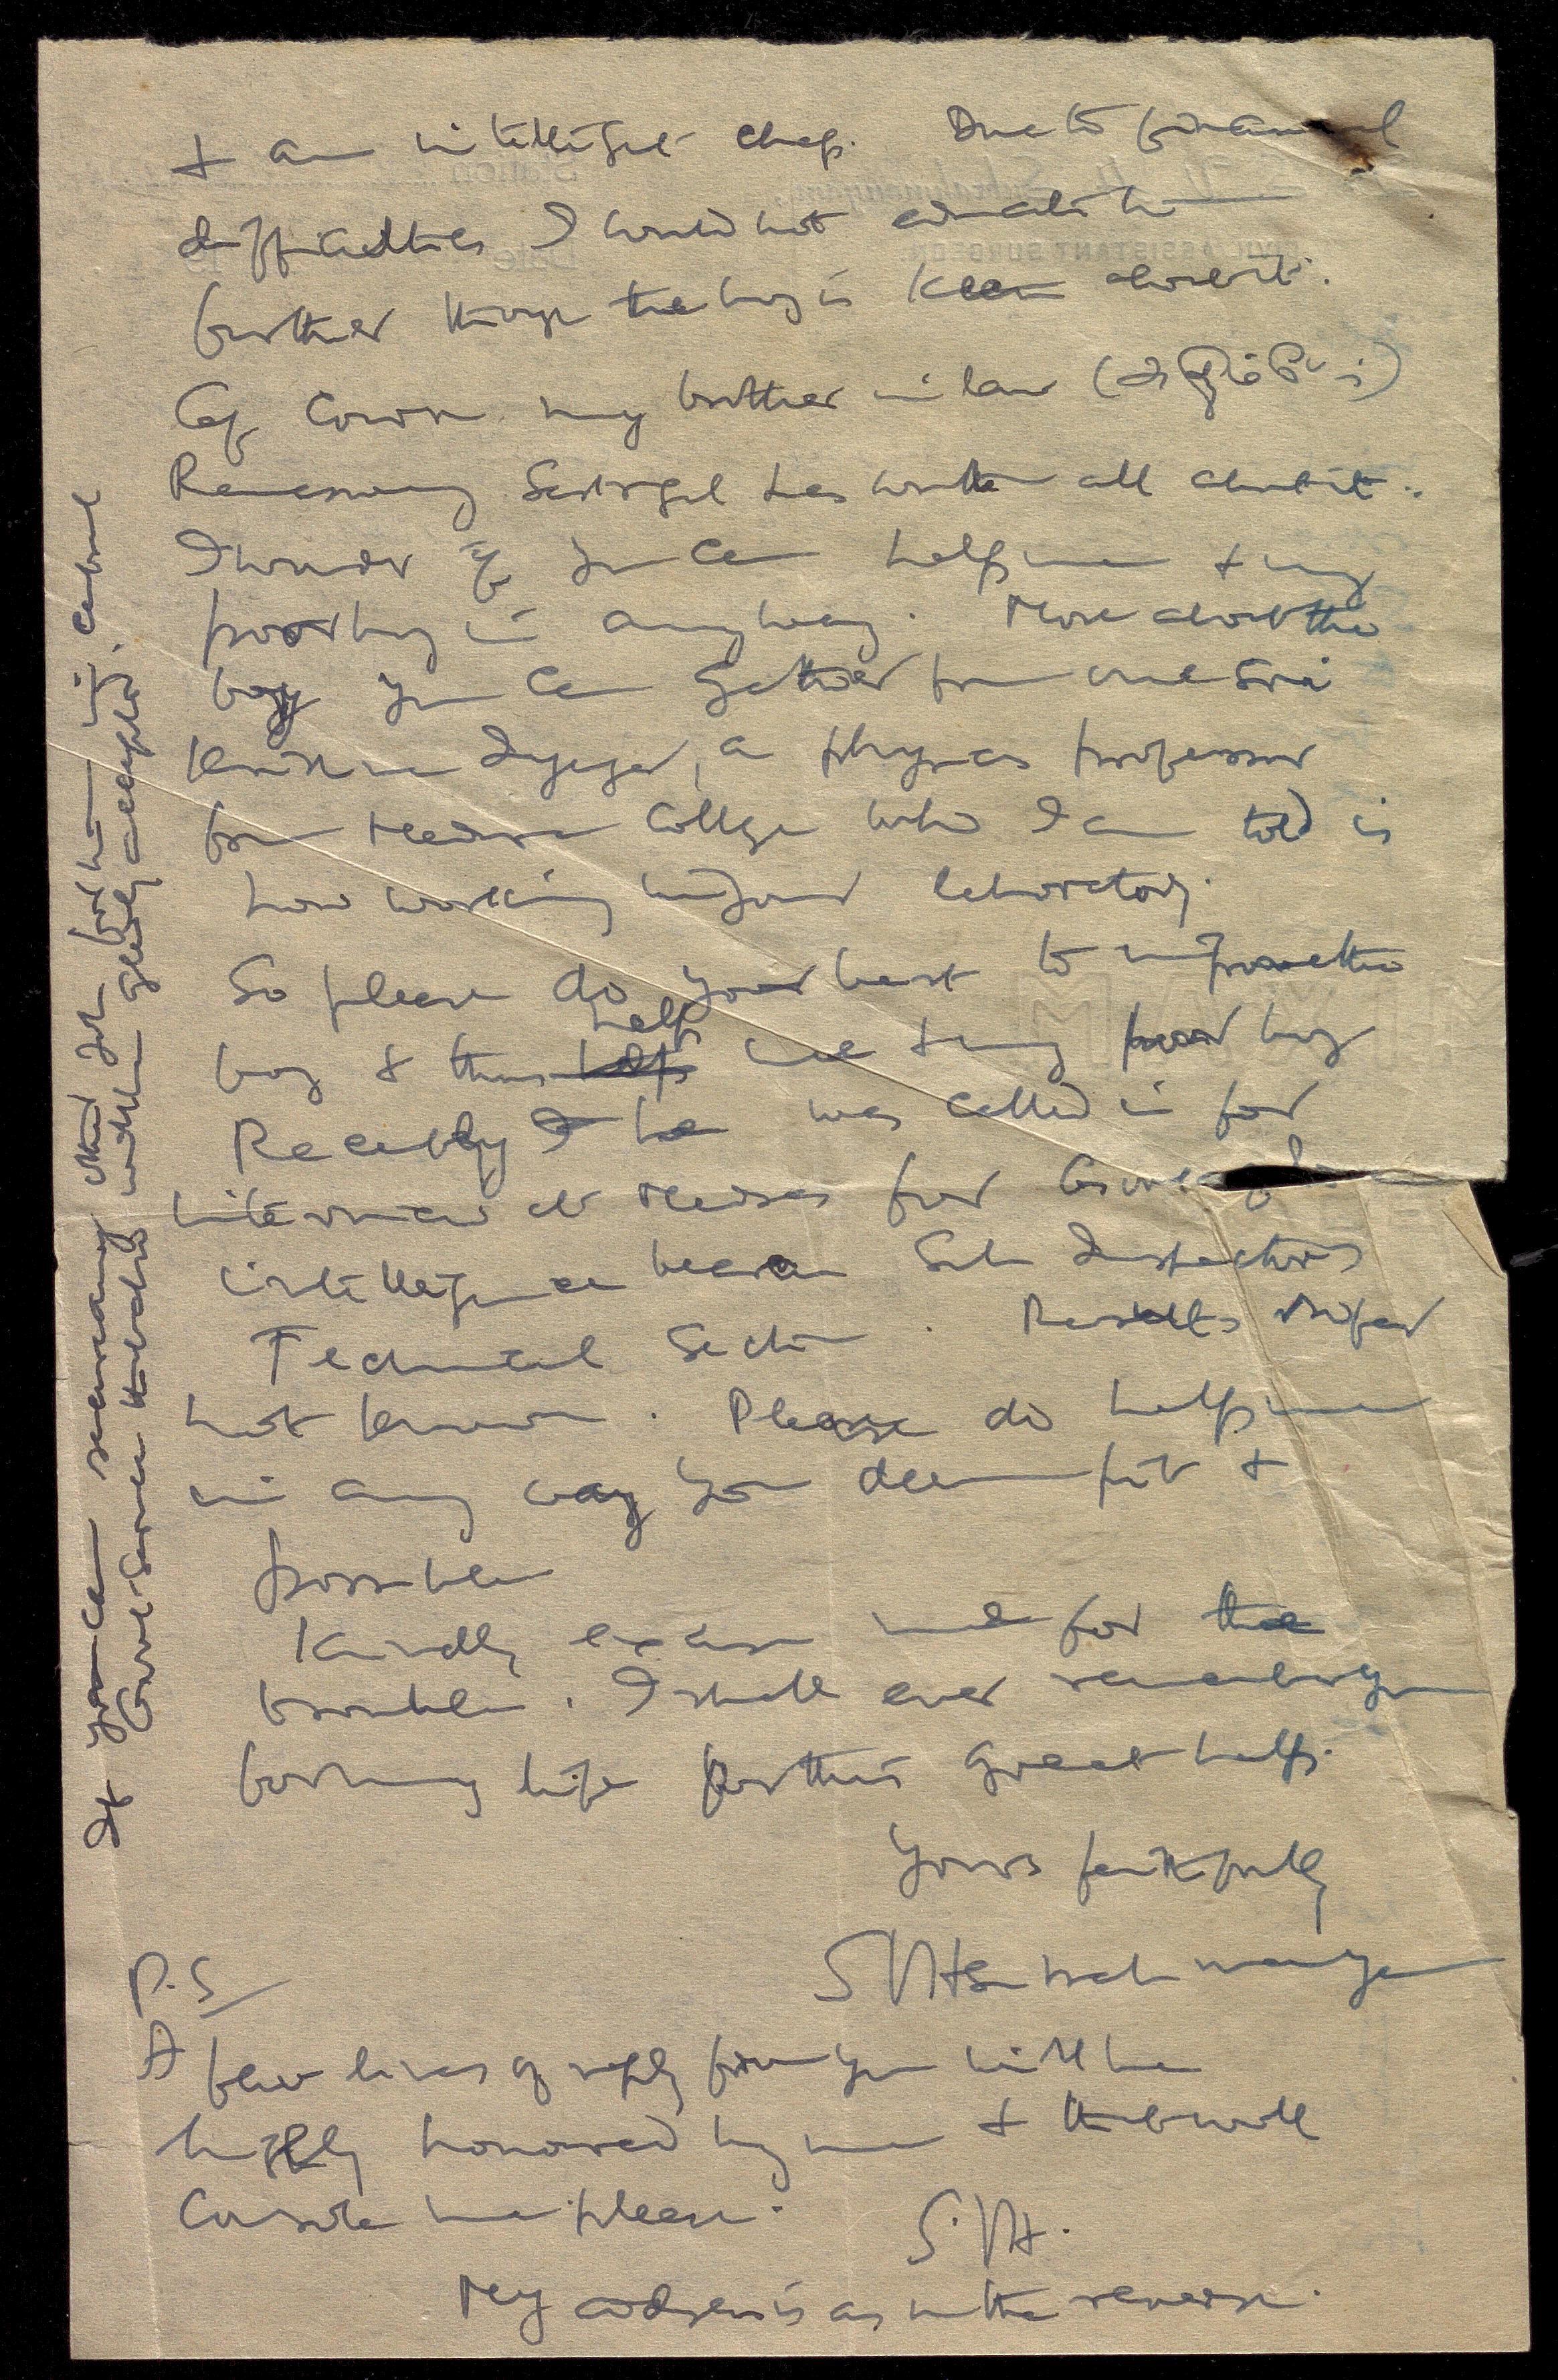 + an intelligent chap. Due to financial
difficulties I could not educate him
further though the boy is keen about it.
Of course my brother in law
has written all about it.
I wonder if you can help me + my
poor boy in anyway. More about the
boy you can gather from one Sri
Krishna Iyyer, a physics professor
from Madura College who I am told is
now working in your laboratory.
So please do your best to improve the
boy & thus help me + my poor boy
Recently he was called in for
interview at Madras for
intelligence bureau Sub Inspectors
Technical Section. Results so far
not known. Please do help me
in any way you deem fit +
possible
Kindly excuse me for the
trouble. I shall ever remember you
for my life for this great help.
Yours faithfully
S V H Subrahmanyan
P.S
A few lines of reply from you will be
highly honoured by me + that will
console me please.
S.V.H.
My address is as in the reverse.
If you can secure any other job for him in Central
Govt. Service that also will be gladly accepted.